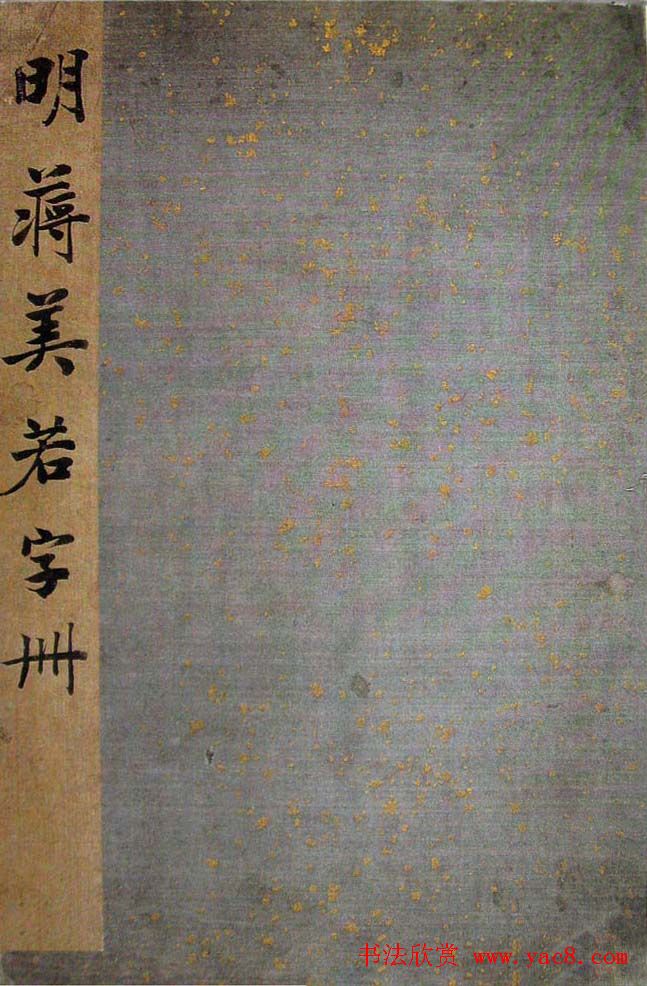 明蔣美若字冊
书法欣赏 www.yac8.com